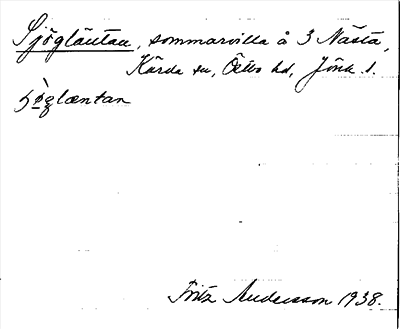 Sjögläntan, sommarvilla å 3 Nästa,
Kärda sn, Östbo hd, Jönk. l.
ʃö̀glæntan
Fritz Andersson 1938.